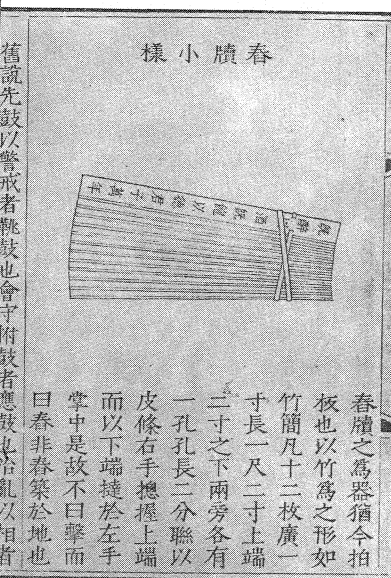 舂牘小樣
既醉酒既飽以德君子萬年
舂牘之爲器猶今拍
板也以竹爲之形如
竹簡凡十二枚廣一
寸長一尺二寸上端
二寸之下兩旁各有
一孔孔長二分聯以
皮條右手揔握上端
而以下端撻於左手
掌中是故不曰擊而
曰舂非舂築於地也
舊說先鼓以警戒者鞉鼓也會守拊鼓者應鼓也治亂以相者